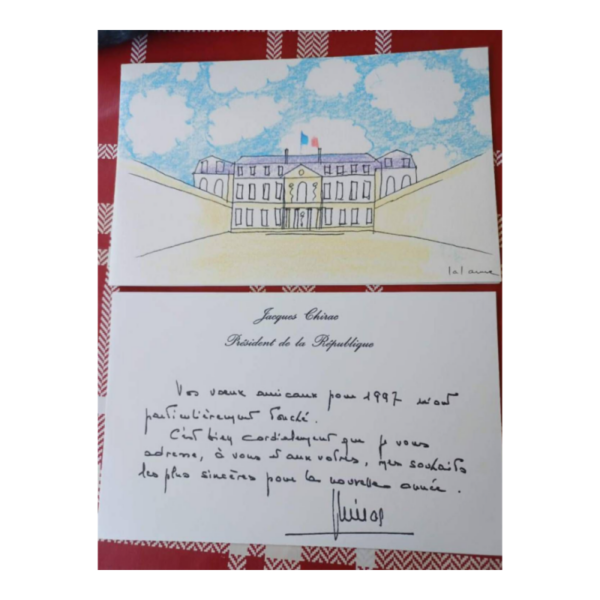 lalanne
Jacques Chirac
Président de la République
Vos vœux amicaux pour 1997 m'ont
particulièrement touché.
C'est bien cordialement que je vous
adresse, à vous et aux vôtres, mes souhaits
les plus sincères pour la nouvelle année.